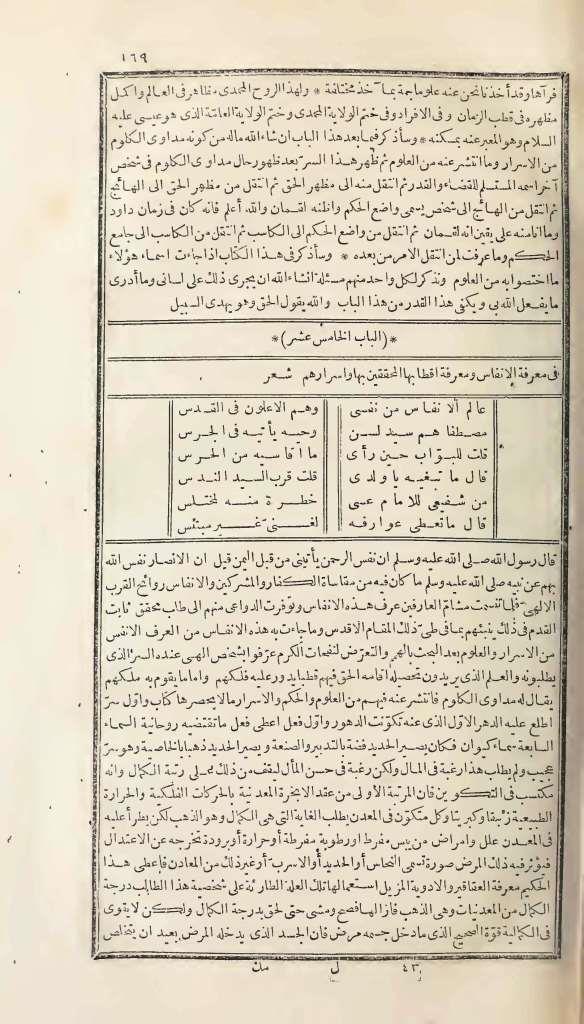 ١٦٩
قرآها وقد أخذنا نحن عنه علوما جمة بما آخذ مختلفة * ولهذا الروح المحمدى مظاهر فى العالم واكمل
مظهره فى قطب الزمان وفى الافراد وفى ختم الولاية المحمدى وختم الولاية العامّة الذى هو عيسى عليه
السلام وهو المعبر عنه بمسكنه * وسأذكر فيما بعد هذا الباب ان شاء الله ماله من كونه مداوى الكلوم
من الاسرار وما انتشر عنه من العلوم ثم ظهر هذا السرّ بعد ظهور حال مداوى الكلوم فى شخص
آخر اسمه المستسلم للقضاء والقدر ثم انتقل منه الى مظهر الحق ثم انتقل من مظهر الحق الى الهائج
ثم انتقل من الهائج الى شخص يسمى واضع الحكم واظنه لقمان والله أعلم فانه كان فى زمان داود
وما أنا منه على يقين انه لقمان ثم انتقل من واضع الحكم الى الكاسب ثم انتقل من الكاسب الى جامع
الحكم وما عرفت لمن انتقل الامر من بعده * وسأذكر فى هذا الكتاب اذا جاءت اسماء هؤلاء
ما اختصوا به من العلوم ونذكر لكل واحد منهم مسئلة انشاء الله ان يجرى ذلك على لسانى وما أدرى
ما يفعل الله بى ويكفى هذا القدر من هذا الباب والله يقول الحق وهو يهدى السبيل
*(الباب الخامس عشر)*
فى معرفة الانفاس ومعرفة اقطابها المحققين بها واسرارهم شعر
عالم الانفاس من نفسى وهم الاعلون فى القدس
مصطفاهم سيد لسن وحيه يأتيه فى الجرس
قلت للبوّاب حين رأى ما اقاسيه من الحرس
قال ما تبغيه يا ولدى قلت قرب السيد الندس
من شفيعى للامام عسى خطرة منه لمختلس
قال ما تعطى عوارفه لغنىّ غير مبتئس
قال رسول الله صلى الله عليه وسلم ان نفس الرحمن يأتينى من قبل اليمن قيل ان الانصار نفس الله
بهم عن نبيه صلى الله عليه وسلم ما كان فيه من مقاساة الكفار والمشركين والانفاس روائح القرب
الالهىّ فلما تنسمت مشامّ العارفين عرف هذه الانفاس وتوفرت الدواعى منهم الى طلب محقق ثابت
القدم فى ذلك ينبئهم بما فى طىّ ذلك المقام الاقدس وما جاءت به هذه الانفاس من العرف الانفس
من الاسرار والعلوم بعد البحث بالهمم والتعرّض لنفحات الكرم عرّفوا بشخص الهىّ عنده السرّ الذى
يطلبونه والعلم الذى يريدون تحصيله اقامه الحق فيهم قطبا يدور عليه فلكهم واماما يقوم به ملكهم
يقال له مداوى الكلوم فانتشر عنه فيهم من العلوم والحكم والاسرار مالا يحصرها كتاب واوّل سرّ
اطلع عليه الدهر الاوّل الذى عنه تكوّنت الدهور واوّل فعل اعطى فعل ما تقتضيه روحانية السماء
السابعة سماء كيوان فكان يصير الحديد فضة بالتدبير والصنعة ويصير الحديد ذهبا بالخاصية وهو سرّ
عجيب ولم يطلب هذا رغبة فى المال ولكن رغبة فى حسن المآل ليقف من ذلك على رتبة الكمال وانه
مكتسب فى التكوين فان المرتبة الاولى من عقد الابخرة المعدنية بالحركات الفلكية والحرارة
الطبيعية زئبقا وكبريتا وكل متكوّن فى المعدن يطلب الغاية التى هى الكمال وهو الذهب لكن يطرأ عليه
فى المعدن علل وامراض من يبس مفرط او رطوبة مفرطة أو حرارة أو برودة تخرجه عن الاعتدال
فيؤثر فيه ذلك المرض صورة تسمى النحاس أو الحديد أو الاسرب أو غير ذلك من المعادن فأعطى هذا
الحكيم معرفة العقاقير والادوية المزيل استعمالها تلك العلة الطارئة على شخصية هذا الطالب درجة
الكمال من المعدنيات وهى الذهب فازالها فصح ومشى حتى لحق بدرجة الكمال ولكن لا يقوى
فى الكمالية قوّة الصحيح الذى ما دخل جسمه مرض فان الجسد الذى يدخله المرض بعيد ان يتخلص
٤٣ ل مك